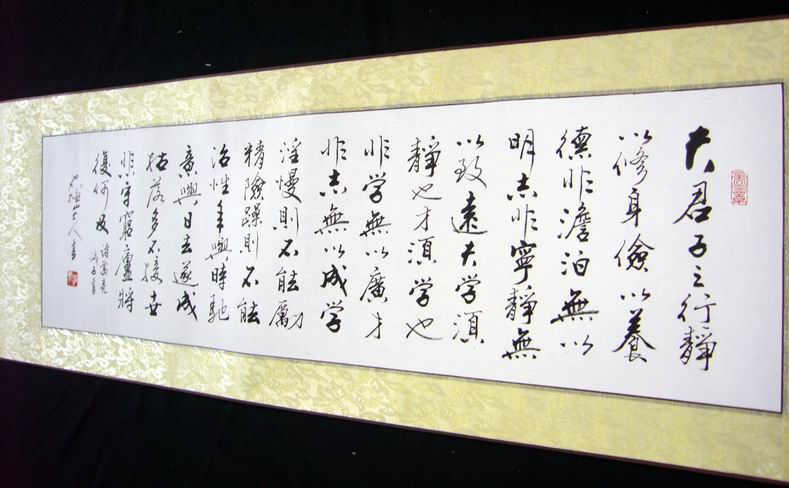 夫君子之行靜
以修身儉以養
德非澹泊無以
明志非寧靜無
以致遠夫学須
靜也才須学也
非学無以廣才
非志無以成学
淫慢則不能勵
精險躁則不能
治性年與時馳
意與日去遂成
枯落多不接世
悲守窮廬將
復何及
諸葛亮
誡子書
人書